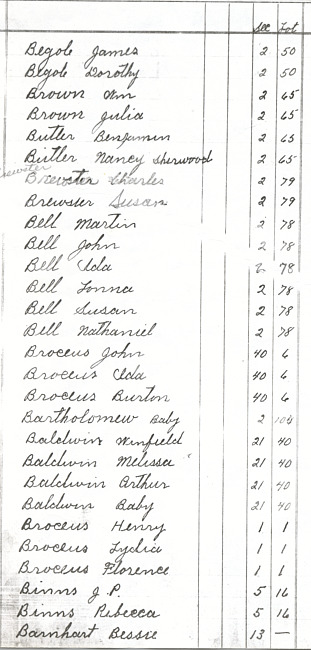 Sec Lot
Begole James 2 50
Begole Dorothy 2 50
Brown Wm 2 65
Brown Julia 2 65
Butler Benjamin 2 65
Butler Nancy Sherwood 2 65
Brewster Charles 2 79
Brewster Susan 2 79
Bell Martin 2 78
Bell John 2 78
Bell Ida 2 78
Bell 2 78
Bell Susan 2 78
Bell Nathaniel 2 78
Broceus John 40 6
Broceus Ida 40 6
Broceus Burton 40 6
Bartholomew Baby 2 104
Baldwin Winfield 21 40
Baldwin Melissa 21 40
Baldwin Arthur 21 40
Baldwin Baby 21 40
Broceus Henry 1 1
Broceus Lydia 1 1
Broceus Florence 1 1
Binns J.P. 5 16
Binns Rebecca 5 16
Barnhart Bessie 13 —